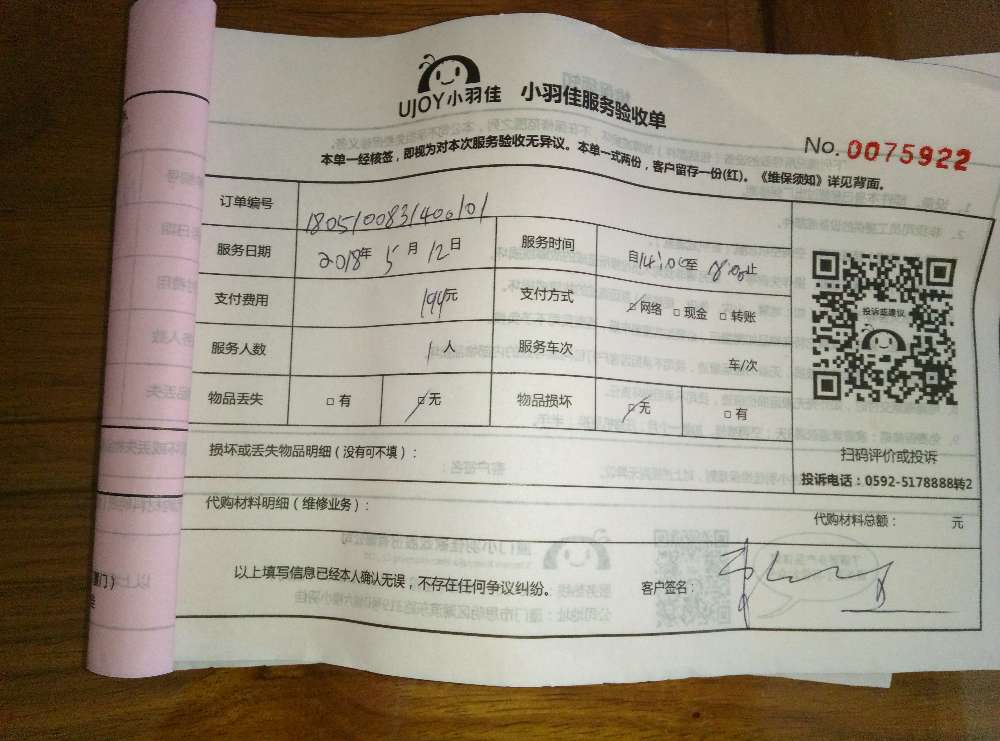 UJOY小羽佳 小羽佳服务验收单
No.0075922
本单一经核签，即视为对本次服务验收无异议。本单一式两份，客户留存一份(红)。《维保须知》详见背面。
订单编号 1805100831400101
服务日期 2018年 5月 12日 服务时间 自14:00至 18:00止
支付费用 194元 支付方式 □网络 □现金 □转账
投诉或建议
服务人数 1人 服务车次 车/次
物品丢失 □有 □无 物品损坏 □无 □有
扫码评价或投诉
损坏或丢失物品明细（没有可不填）：
投诉电话：0592-5178888转2
代购材料明细（维修业务）：
代购材料总额： 元
以上填写信息已经本人确认无误，不存在任何争议纠纷。 客户签名：